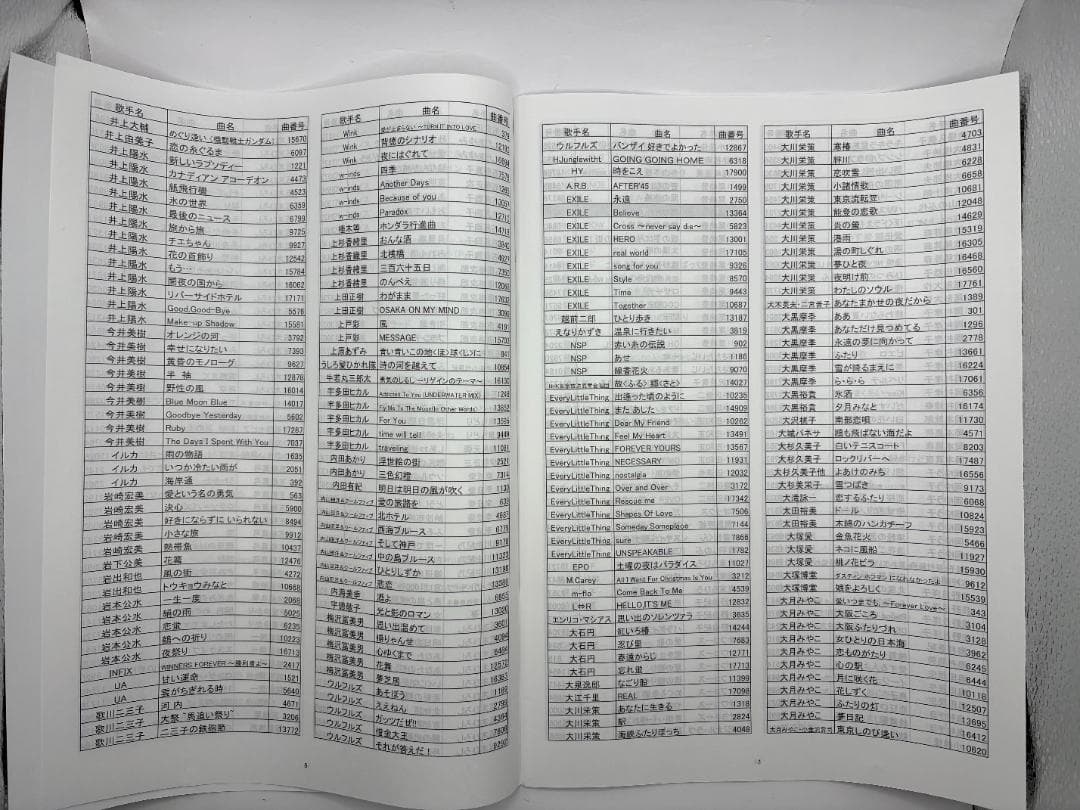 歌手名 曲名 曲番号
井上大輔 めぐり逢い(機動戦士ガンダム) 15670
井上由美子 恋の糸ぐるま 6097
井上陽水 新しいラプソディー 1221
井上陽水 カナディアン アコーデオン 4473
井上陽水 紙飛行機 4523
井上陽水 氷の世界 6359
井上陽水 最後のニュース 6799
井上陽水 旅から旅 9725
井上陽水 チエちゃん 9927
井上陽水 花の首飾り 12542
井上陽水 もう… 15784
井上陽水 闇夜の国から 16062
井上陽水 リバーサイドホテル 17171
井上陽水 Good,Good-Bye 5576
井上陽水 Make-up Shadow 15581
今井美樹 オレンジの河 3792
今井美樹 幸せになりたい 7393
今井美樹 黄昏のモノローグ 9627
今井美樹 半袖 12876
今井美樹 野性の風 16014
今井美樹 Blue Moon Blue 14017
今井美樹 Goodbye Yesterday 5602
今井美樹 Ruby 17287
今井美樹 The Days I Spent With You 7037
イルカ 雨の物語 1635
イルカ いつか冷たい雨が 2051
イルカ 海岸通 392
岩崎宏美 愛という名の勇気 563
岩崎宏美 決心 5900
岩崎宏美 好きにならずに いられない 8494
岩崎宏美 小さな旅 9912
岩崎宏美 熱帯魚 10437
岩下公水 花篝 12476
岩出和也 風の街 4272
岩出和也 トウキョウみなと 10668
岩本公水 一生一度 2068
岩本公水 絹の雨 5025
岩本公水 恋蛍 6235
岩本公水 鶴への祈り 10223
岩本公水 夜祭り 16713
INFIX WINNERS FOREVER ～勝利者よ～ 2417
UA 甘い運命 1521
UA 雲がちぎれる時 5640
歌川二三子 河内 4671
歌川二三子 大祭 ～馬追い祭り～ 3206
歌川二三子 二三子の鉄砲節 13772
5
歌手名 曲名 曲番号
Wink 愛が止まらない ～TURN IT INTO LOVE
Wink 背徳のシナリオ
Wink 夜にはぐれて
w-inds 四季
w-inds Another Days
w-inds Because of you
w-inds Paradox
植木等 ホンダラ行進曲
上杉香緒里 おんな酒
上杉香緒里 北桟橋
上杉香緒里 三百六十五日
上杉香緒里 のんべえ
上田正樹 わがまま
上田正樹 OSAKA ON MY MIND
上戸彩 風
上戸彩 MESSAGE
上原あずみ 青い青いこの地(ほ)球(し)に
うしろ髪ひかれ隊 時の河を越えて
牛若丸三郎太 勇気のしるし ～リゲインのテーマ～
宇多田ヒカル Addicted To You (UNDERWATER MIX)
宇多田ヒカル Fly Me To The Moon(In Other Words)
宇多田ヒカル For You
宇多田ヒカル time will tell
宇多田ヒカル traveling
内田あかり 浮世絵の街
内田あかり 三色幻燈
内田有紀 明日は明日の風が吹く
内山田洋&クールファイブ 愛の旅路を
内山田洋&クールファイブ 北ホテル
内山田洋&クールファイブ 西海ブルース
内山田洋&クールファイブ そして神戸
内山田洋&クールファイブ 中の島ブルース
内山田洋&クールファイブ ひとりしずか
内山田洋&クールファイブ 悲恋
内海美幸 酒よ
宇徳敬子 光と影のロマン
梅沢富美男 思い出温めて
梅沢富美男 姐りゃんせ
梅沢富美男 心ゆくまで
梅沢富美男 花舞
梅沢富美男 夢芝居
ウルフルズ あそぼう
ウルフルズ ええねん
ウルフルズ ガッツだぜ!!
ウルフルズ 借金大王
ウルフルズ それが答えだ！
歌手名 曲名 曲番号
ウルフルズ バンザイ 好きでよかった 12867
HJunglewitht GOING GOING HOME 6318
HY 時をこえ 17900
A.R.B. AFTER'45 1499
EXILE 永遠 2750
EXILE Believe 13364
EXILE Cross ～never say die～ 5823
EXILE HERO 13001
EXILE real world 17105
EXILE song for you 9326
EXILE Style 8570
EXILE Time 9443
EXILE Together 10687
越前二郎 ひとり歩き 13187
えなりかずき 温泉に行きたい 3819
NSP 赤い糸の伝説 902
NSP あせ 1186
NSP 線香花火 9070
NHK東京放送児童合唱団 故〈ふる〉郷〈さと〉 14027
EveryLittleThing 出逢った頃のように 10235
EveryLittleThing また あした 14909
EveryLittleThing Dear My Friend 10262
EveryLittleThing Feel My Heart 13491
EveryLittleThing FOREVER YOURS 13567
EveryLittleThing NECESSARY 11931
EveryLittleThing nostalgia 12032
EveryLittleThing Over and Over 3172
EveryLittleThing Rescue me 17342
EveryLittleThing Shapes Of Love 7506
EveryLittleThing Someday Someplace 7144
EveryLittleThing sure 7866
EveryLittleThing UNSPEAKABLE 1782
EPO 土曜の夜はパラダイス 11027
M.Carey All I Want For Christmas Is You 3212
m-flo Come Back To Me 4539
L⇔R HELLO,IT'S ME 12832
エンリコ・マシアス 思い出のソレンツァラ 3635
大石円 紅いろ椿 14244
大石円 忍び里 7683
大石円 春遠からじ 12771
大石円 忘れ蛍 17713
大泉逸郎 なごり船 11399
大江千里 REAL 17098
大川栄策 あなたに生きる 1318
大川栄策 駅 2824
大川栄策 海峡ふたりぼっち 4048
歌手名 曲名 曲番号
大川栄策 寒椿 4703
大川栄策 絆川 4831
大川栄策 恋吹雪 6228
大川栄策 小諸情歌 6658
大川栄策 東京流転笠 10681
大川栄策 能登の恋歌 12048
大川栄策 炎の螢 14629
大川栄策 港雨 15319
大川栄策 湯の町しぐれ 16305
大川栄策 夢ひと夜 16468
大川栄策 夜明け前 16560
大川栄策 わたしのソウル 17761
大木英夫・二宮善子 あなたまかせの夜だから 1389
大黒摩季 ああ 301
大黒摩季 あなただけ見つめてる 1296
大黒摩季 永遠の夢に向かって 2778
大黒摩季 ふたり 13661
大黒摩季 雪が降るまえに 16224
大黒摩季 ら・ら・ら 17061
大黒裕貴 氷酒 6356
大黒裕貴 夕月みなと 16174
大沢桃子 南部恋唄 11730
大城バネサ 鴎も飛ばない海だよ 4571
大杉久美子 白いテニスコート 8203
大杉久美子 ロックリバーへ 17487
大杉久美子他 よあけのみち 6556
大杉美栄子 雪つばき 9173
大滝詠一 恋するふたり 6068
太田裕美 ドール 10824
太田裕美 木綿のハンカチーフ 15923
大塚愛 金魚花火 5466
大塚愛 ネコに風船 11927
大塚愛 桃ノ花ビラ 15930
大塚博堂 ダスティン・ホフマンになれなかったよ 9612
大塚博堂 娘をよろしく 15539
大月みやこ 愛いつまでも、～Forever Love～ 343
大月みやこ 大阪ごころ 3104
大月みやこ 大阪ふたりづれ 3128
大月みやこ 女ひとりの日本海 3962
大月みやこ 恋ものがたり 6245
大月みやこ 心の駅 6444
大月みやこ 月に咲く花 10118
大月みやこ 花しずく 12507
大月みやこ ふたりの灯 13695
大月みやこ 夢日記 16412
東京しのび逢い 10620